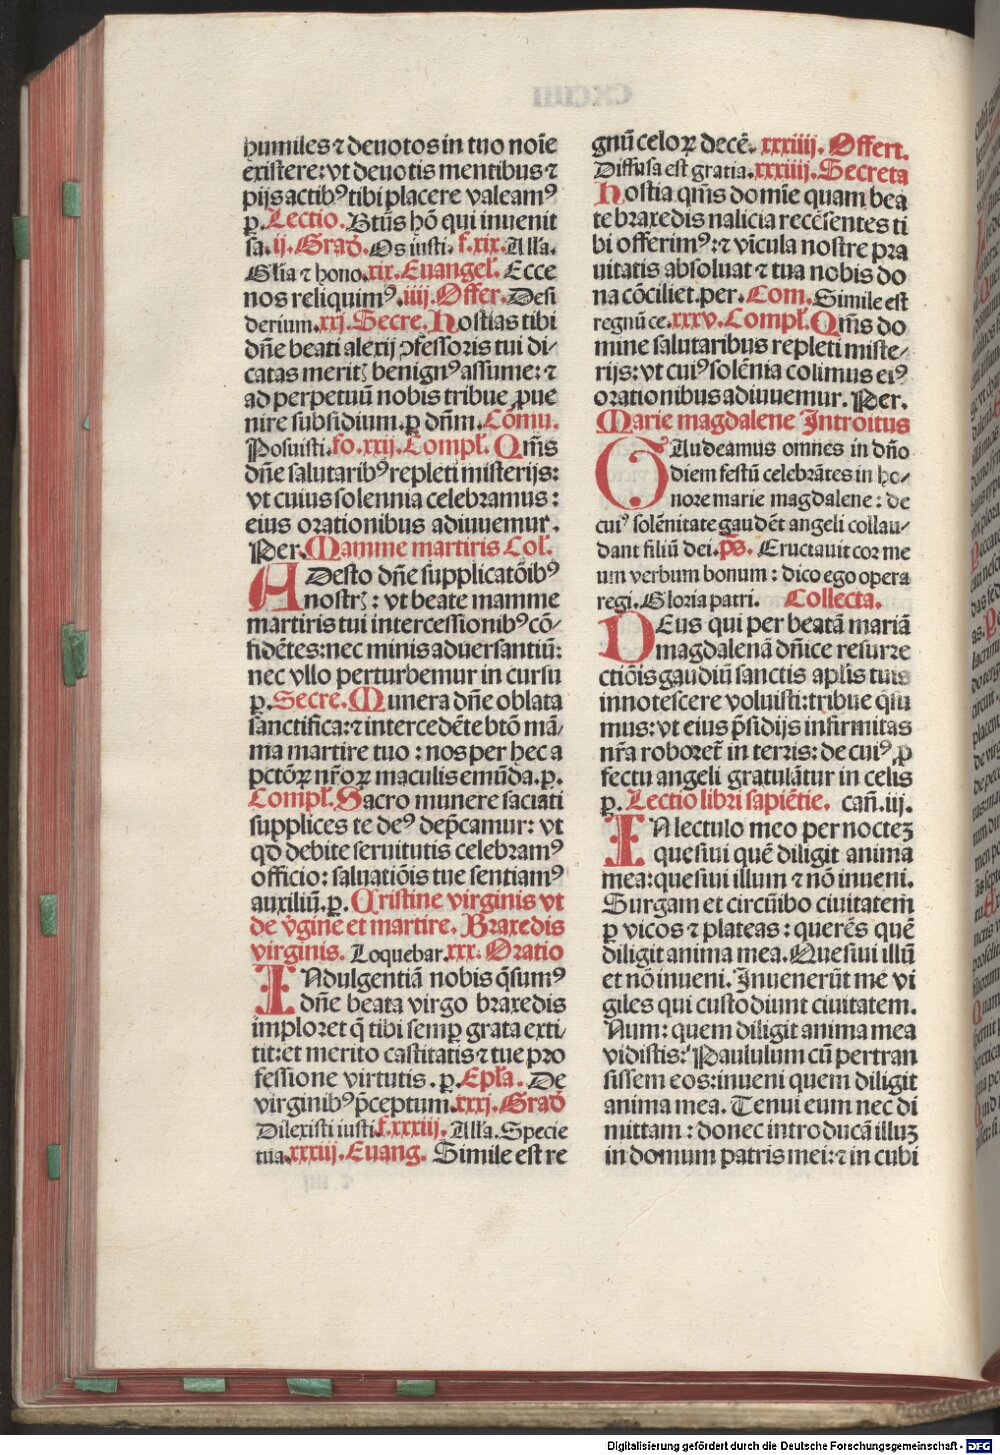 humiles ⁊ deuotos in tuo noīe
existere: vt deuotis mentibus ⁊
pijs actibꝰ tibi placere valeamꝰ
ꝑ. Lectio. Btūs hō qui inuenit
fa. ij. Grad̄. Os iusti. f. xix. Alla.
Glia ⁊ hono. xix. Euangel̄. Ecce
nos reliquimꝰ. iiij. Offer. Desi
derium. xxj. Secre. Hostias tibi
dn̄e beati alexij ꝯfessoris tui di⸗
catas meritꝫ benignꝰ assume: ⁊
ad perpetuū nobis tribue ꝓue
nire subsidium. ꝑ dn̄m. Cōmu.
Posuisti. fo. xxij. Compl̄. Qm̄s
dn̄e salutaribꝰ repleti misterijs:
vt cuius solennia celebramus:
eius orationibus adiuuemur.
Per. Mamme martiris Col̄.
ADesto dn̄e supplicatōibꝰ
nostrꝫ: vt beate mamme
martiris tui intercessionibꝰ cō⸗
fidētes: nec minis aduersantiū:
nec vllo perturbemur in cursu
ꝑ. Secre. Munera dn̄e oblata
sanctifica: ⁊ intercedēte btō mā⸗
ma martire tuo: nos per hec a
pctōꝝ nr̄oꝝ maculis emūda. p.
Compl̄. Sacro munere saciati
supplices te deꝰ dep̄camur: vt
qd debite seruitutis celebramꝰ
officio: saluatiōis tue sentiamꝰ
auxiliū. p. Cristine virginis vt
de v̄gine et martire. Braxedis
virginis. Loquebar. xxx. Oratio
INdulgentiā nobis q̄sumꝰ
dn̄e beata virgo braxedis
imploret q̄ tibi semꝑ grata exti⸗
tit: et merito castitatis ⁊ tue pro
fessione virtutis. p. Epl̄a. De
virginibꝰ p̄ceptum. xxxj. Grad̄
Dilexisti iusti f. xxxiij. Alla. Specie
tua. xxxiij. Euang. Simile est re
gnū celoꝝ decē. xxxiiij. Offert.
Diffusa est gratia. xxxiiij. Secreta
Hostia qm̄s domīe quam bea
te braxedis nalicia recēsentes ti
bi offerimꝰ: ⁊ vīcula nostre pra
uitatis absoluat ⁊ tua nobis do
na cōciliet. per. Com. Simile est
regnū ce. xxxv. Compl̄. Qm̄s do
mine salutaribus repleti miste⸗
rijs: vt cuiꝰ solēnia colimus eiꝰ
orationibus adiuuemur. Per.
Marie magdalene Introitus
GAudeamus omnes in dn̄o
diem festū celebrātes in ho⸗
nore marie magdalene: de
cuiꝰ solēnitate gaudēt angeli collau⸗
dant filiū dei. ps̄. Eructauit cor me
um verbum bonum: dico ego opera
regi. Gloria patri. Collecta.
DEus qui per beatā mariā
magdalenā dn̄ice resurre
ctiōis gaudiū sanctis aplīs tuis
innotescere voluisti: tribue q̄su
mus: vt eius p̄sidijs infirmitas
nr̄a roboret̄ in terris: de cuiꝰ ꝓ
fectu angeli gratulātur in celis
ꝑ. Lectio libri sapiētie. can̄. iij.
IN lectulo meo per noctez
quesiui quē diligit anima
mea: quesiui illum ⁊ nō inueni.
Surgam et circuībo ciuitatem
ꝑ vicos ⁊ plateas: querēs quē
diligit anima mea. Quesiui illū
et nō inueni. Inuenerūt me vi
giles qui custodiunt ciuitatem.
Num: quem diligit anima mea
vidistis: Paululum cū pertran
sissem eos: inueni quem diligit
anima mea. Tenui eum nec di
mittam: donec introducā illuz
in domum patris mei: ⁊ in cubi
Digitalisierung gefördert durch die Deutsche Forschungsgemeinschaft - DFG